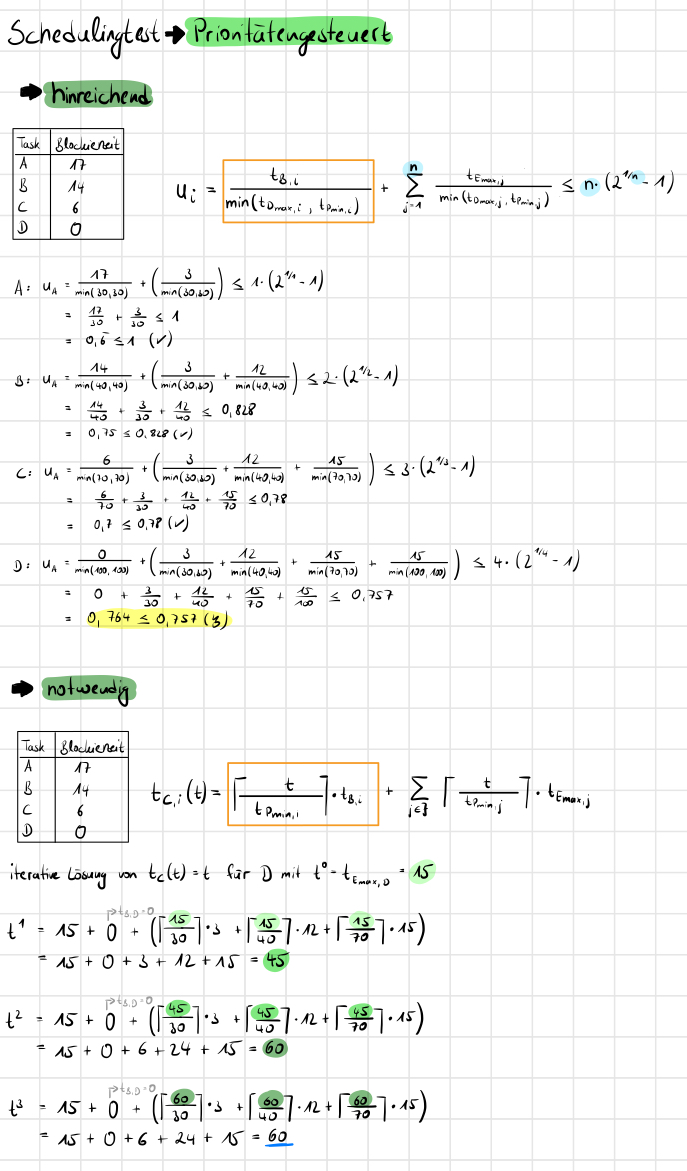 Schedulingtest → Prioritätengesteuert
→ hinreichend
Task Blockierzeit
A 17
B 14
C 6
D 0
u_i = t_B,i / min(t_Dmax,i , t_Pmin,i) + Σ_{j=1}^{n} t_Emax,j / min(t_Dmax,j, t_Pmin,j) ≤ n·(2^{1/n} - 1)
A: u_A = 17/min(30,30) + (3/min(30,30)) ≤ 1·(2^{1/1} - 1)
= 17/30 + 3/30 ≤ 1
= 0,6̄ ≤ 1 (✓)
B: u_A = 14/min(40,40) + (3/min(30,30) + 12/min(40,40)) ≤ 2·(2^{1/2} - 1)
= 14/40 + 3/30 + 12/40 ≤ 0,828
= 0,75 ≤ 0,828 (✓)
C: u_A = 6/min(70,70) + (3/min(30,30) + 12/min(40,40) + 15/min(70,70)) ≤ 3·(2^{1/3} - 1)
= 6/70 + 3/30 + 12/40 + 15/70 ≤ 0,78
= 0,7 ≤ 0,78 (✓)
D: u_A = 0/min(100,100) + (3/min(30,30) + 12/min(40,40) + 15/min(70,70) + 15/min(100,100)) ≤ 4·(2^{1/4} - 1)
= 0 + 3/30 + 12/40 + 15/70 + 15/100 ≤ 0,757
= 0,764 ≤ 0,757 (↯)
→ notwendig
Task Blockierzeit
A 17
B 14
C 6
D 0
t_C,i(t) = ⌈t/t_Pmin,i⌉ · t_B,i + Σ_{j∈J} ⌈t/t_Pmin,j⌉ · t_Emax,j
iterative Lösung von t_C(t) = t für D mit t^0 = t_Emax,D = 15
t_B,D = 0
t^1 = 15 + 0 + (⌈15/30⌉·3 + ⌈15/40⌉·12 + ⌈15/70⌉·15)
= 15 + 0 + 3 + 12 + 15 = 45
t_B,D = 0
t^2 = 15 + 0 + (⌈45/30⌉·3 + ⌈45/40⌉·12 + ⌈45/70⌉·15)
= 15 + 0 + 6 + 24 + 15 = 60
t_B,D = 0
t^3 = 15 + 0 + (⌈60/30⌉·3 + ⌈60/40⌉·12 + ⌈60/70⌉·15)
= 15 + 0 + 6 + 24 + 15 = 60